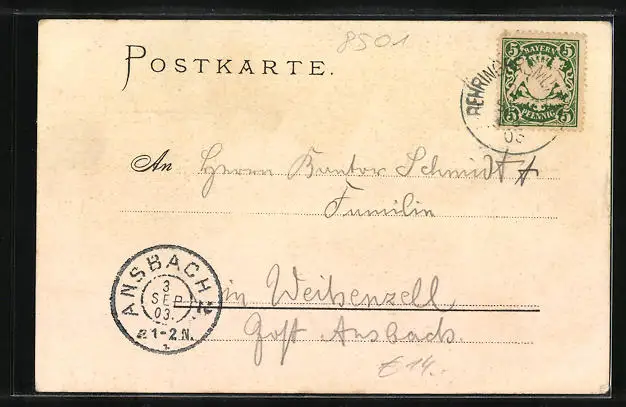 8501
POSTKARTE.
5 BAYERN 5
5 PFENNIG 5
03
An Herrn Kantor Schmidt &
Familie
ANSBACH
3
SEP
03.
1-2N.
in Weihenzell
Post Ansbach.
€14.-